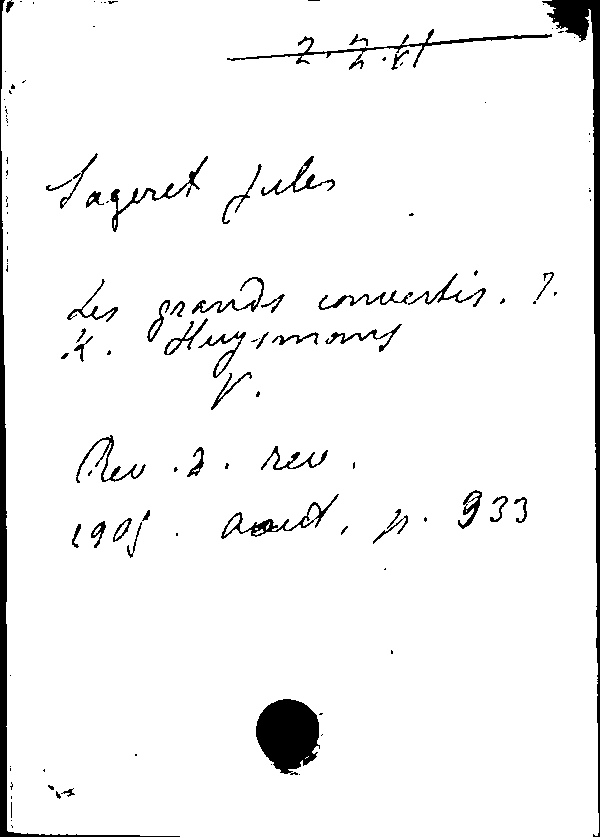 2.2.41
Sageret Jules
Les grands convertis. J.
K. Huysmans
V.
Rev. d. rev.
1905. août, p. 933